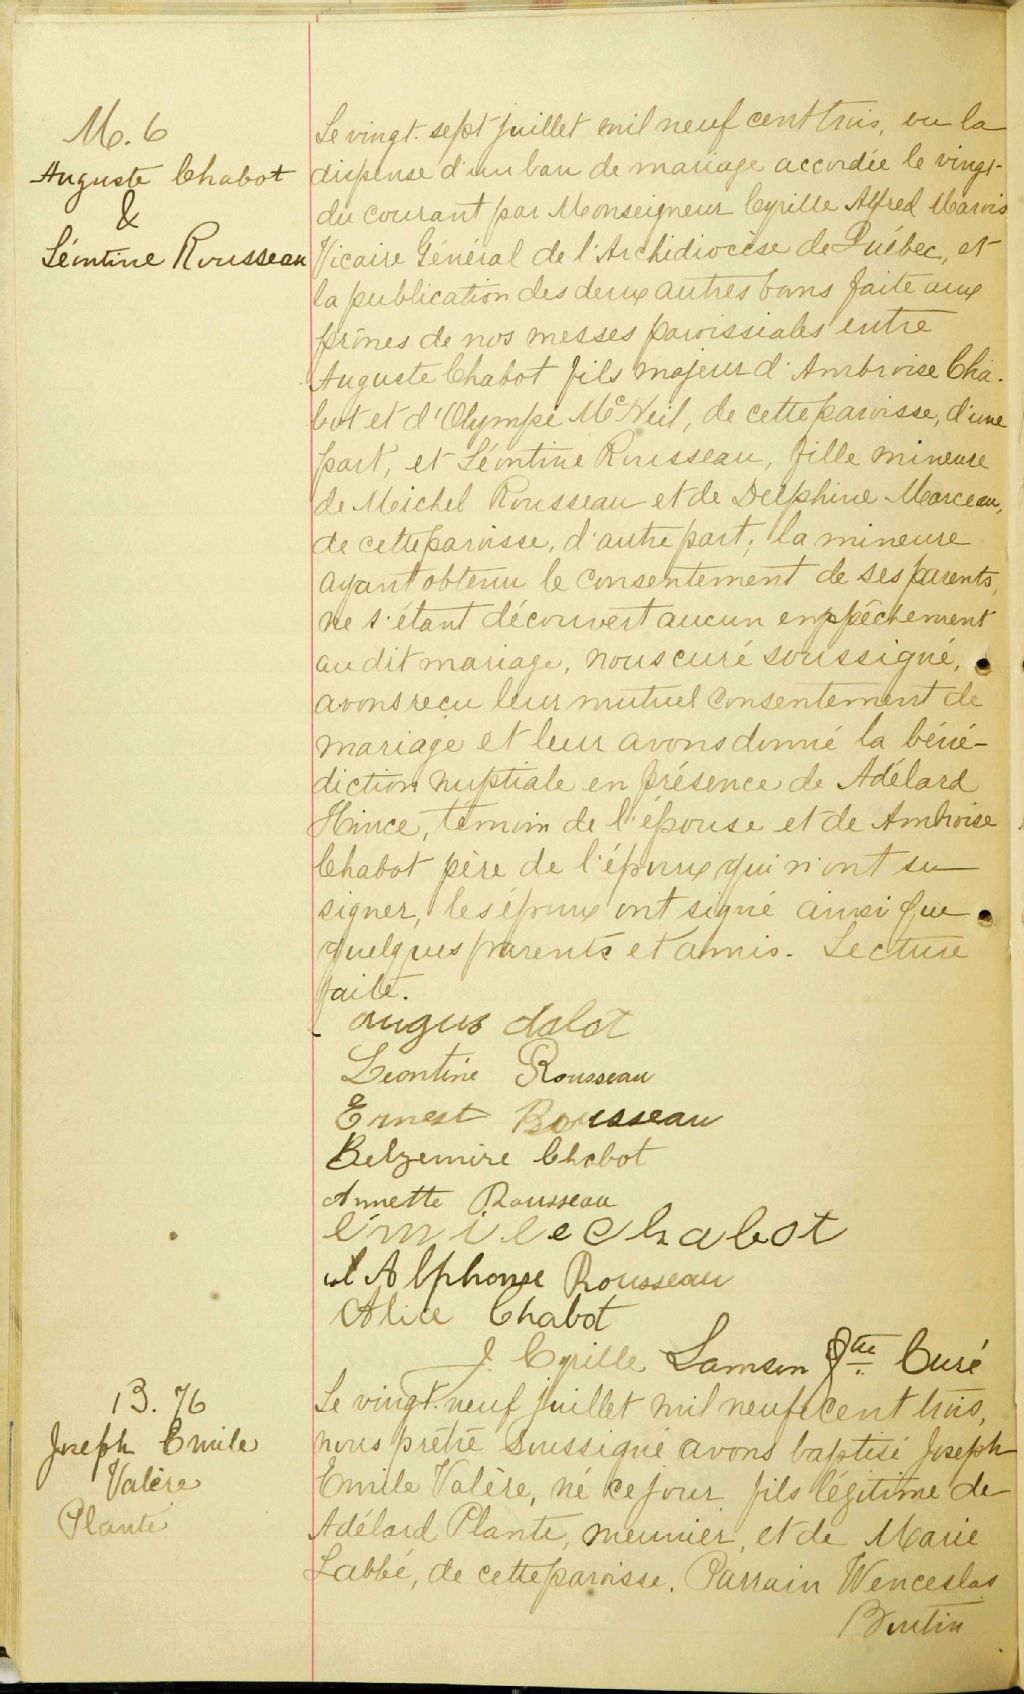 M. 6
Auguste Chabot
&
Léontine Rousseau
Le vingt-sept juillet mil neuf cent trois, vu la
dispense d'un ban de mariage accordée le vingt-
du courant par Monseigneur Cyrille Alfred Marois
Vicaire Général de l'Archidiocèse de Québec, et
la publication des deux autres bans faite aux
prônes de nos messes paroissiales entre
Auguste Chabot fils majeur d'Ambroise Cha-
bot et d'Olympe McNeil, de cette paroisse, d'une
part, et Léontine Rousseau, fille mineure
de Michel Rousseau et de Delphine Marceau,
de cette paroisse, d'autre part; la mineure
ayant obtenu le consentement de ses parents,
ne s'étant découvert aucun empêchement
au dit mariage, nous curé soussigné,
avons reçu leur mutuel consentement de
mariage et leur avons donné la béné-
diction nuptiale en présence de Adélard
Hince, témoin de l'épouse et de Ambroise
Chabot père de l'époux qui n'ont su
signer, les époux ont signé ainsi que
quelques parents et amis. Lecture
faite.
Léontine Rousseau
Ernest Rousseau
Belzemire Chabot
Annette Rousseau
émile chabot
Alphonse Rousseau
Alice Chabot
J. Cyrille Lamson Ptre Curé
B. 76
Joseph Emile
Valère
Plante
Le vingt-neuf juillet mil neuf cent trois,
nous prêtre soussigné avons baptisé Joseph
Emile Valère, né ce jour, fils légitime de
Adélard Plante, meunier, et de Marie
Labbé, de cette paroisse. Parrain Wenceslas
Boutin